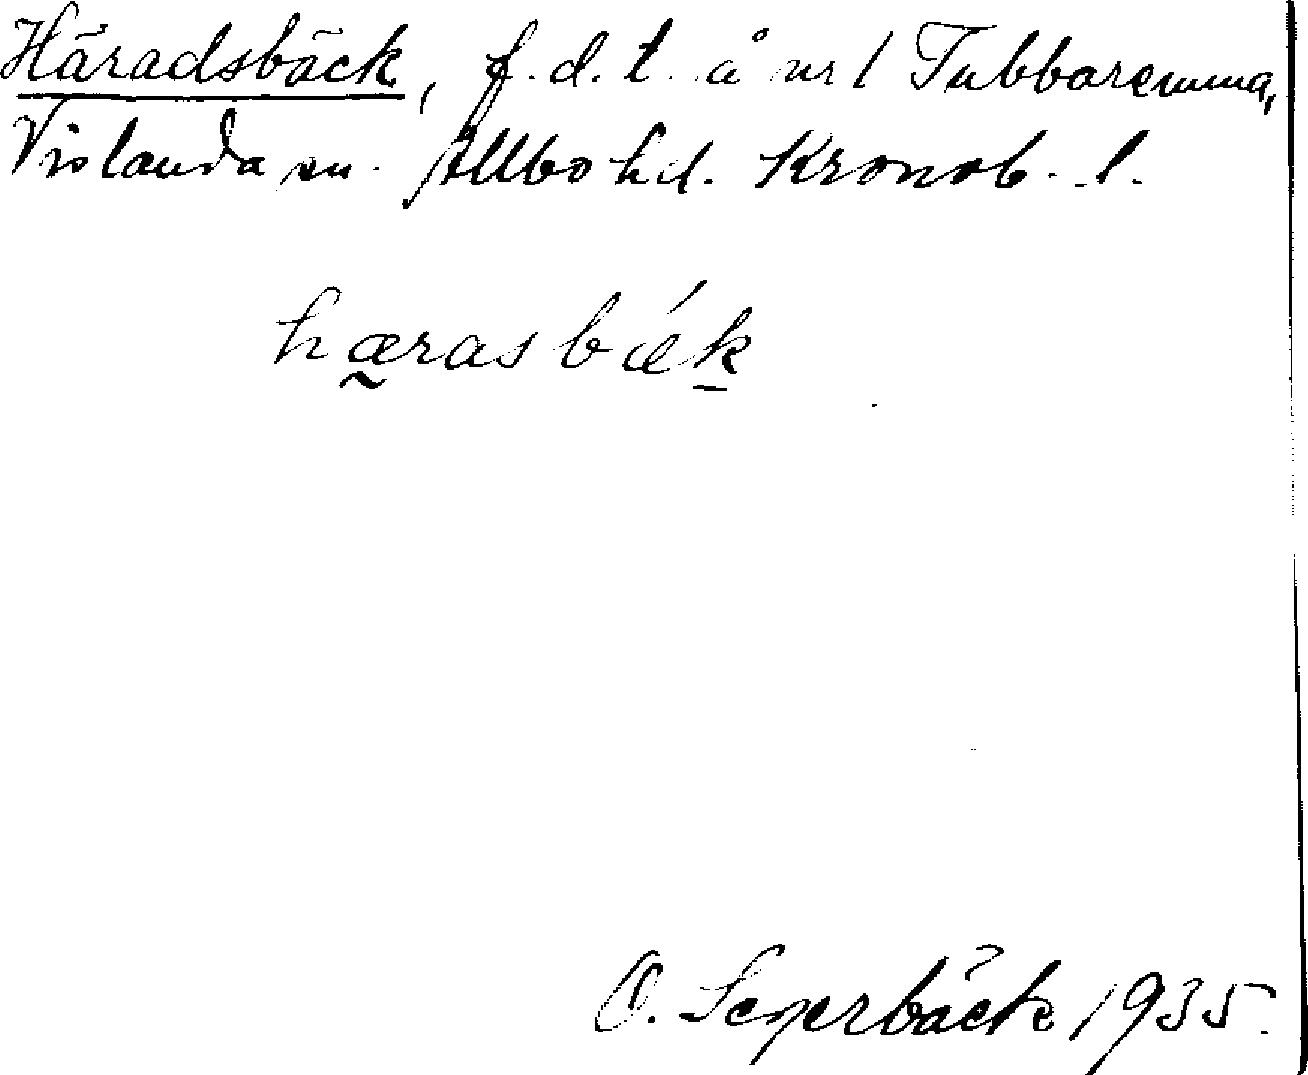 Häradsbäck, f.d.t. å nr 1 Tubbaremma,
Vislanda sn. Allbo hd. Kronob. l.
hærasbǽk
O. Segerbäck 1935.